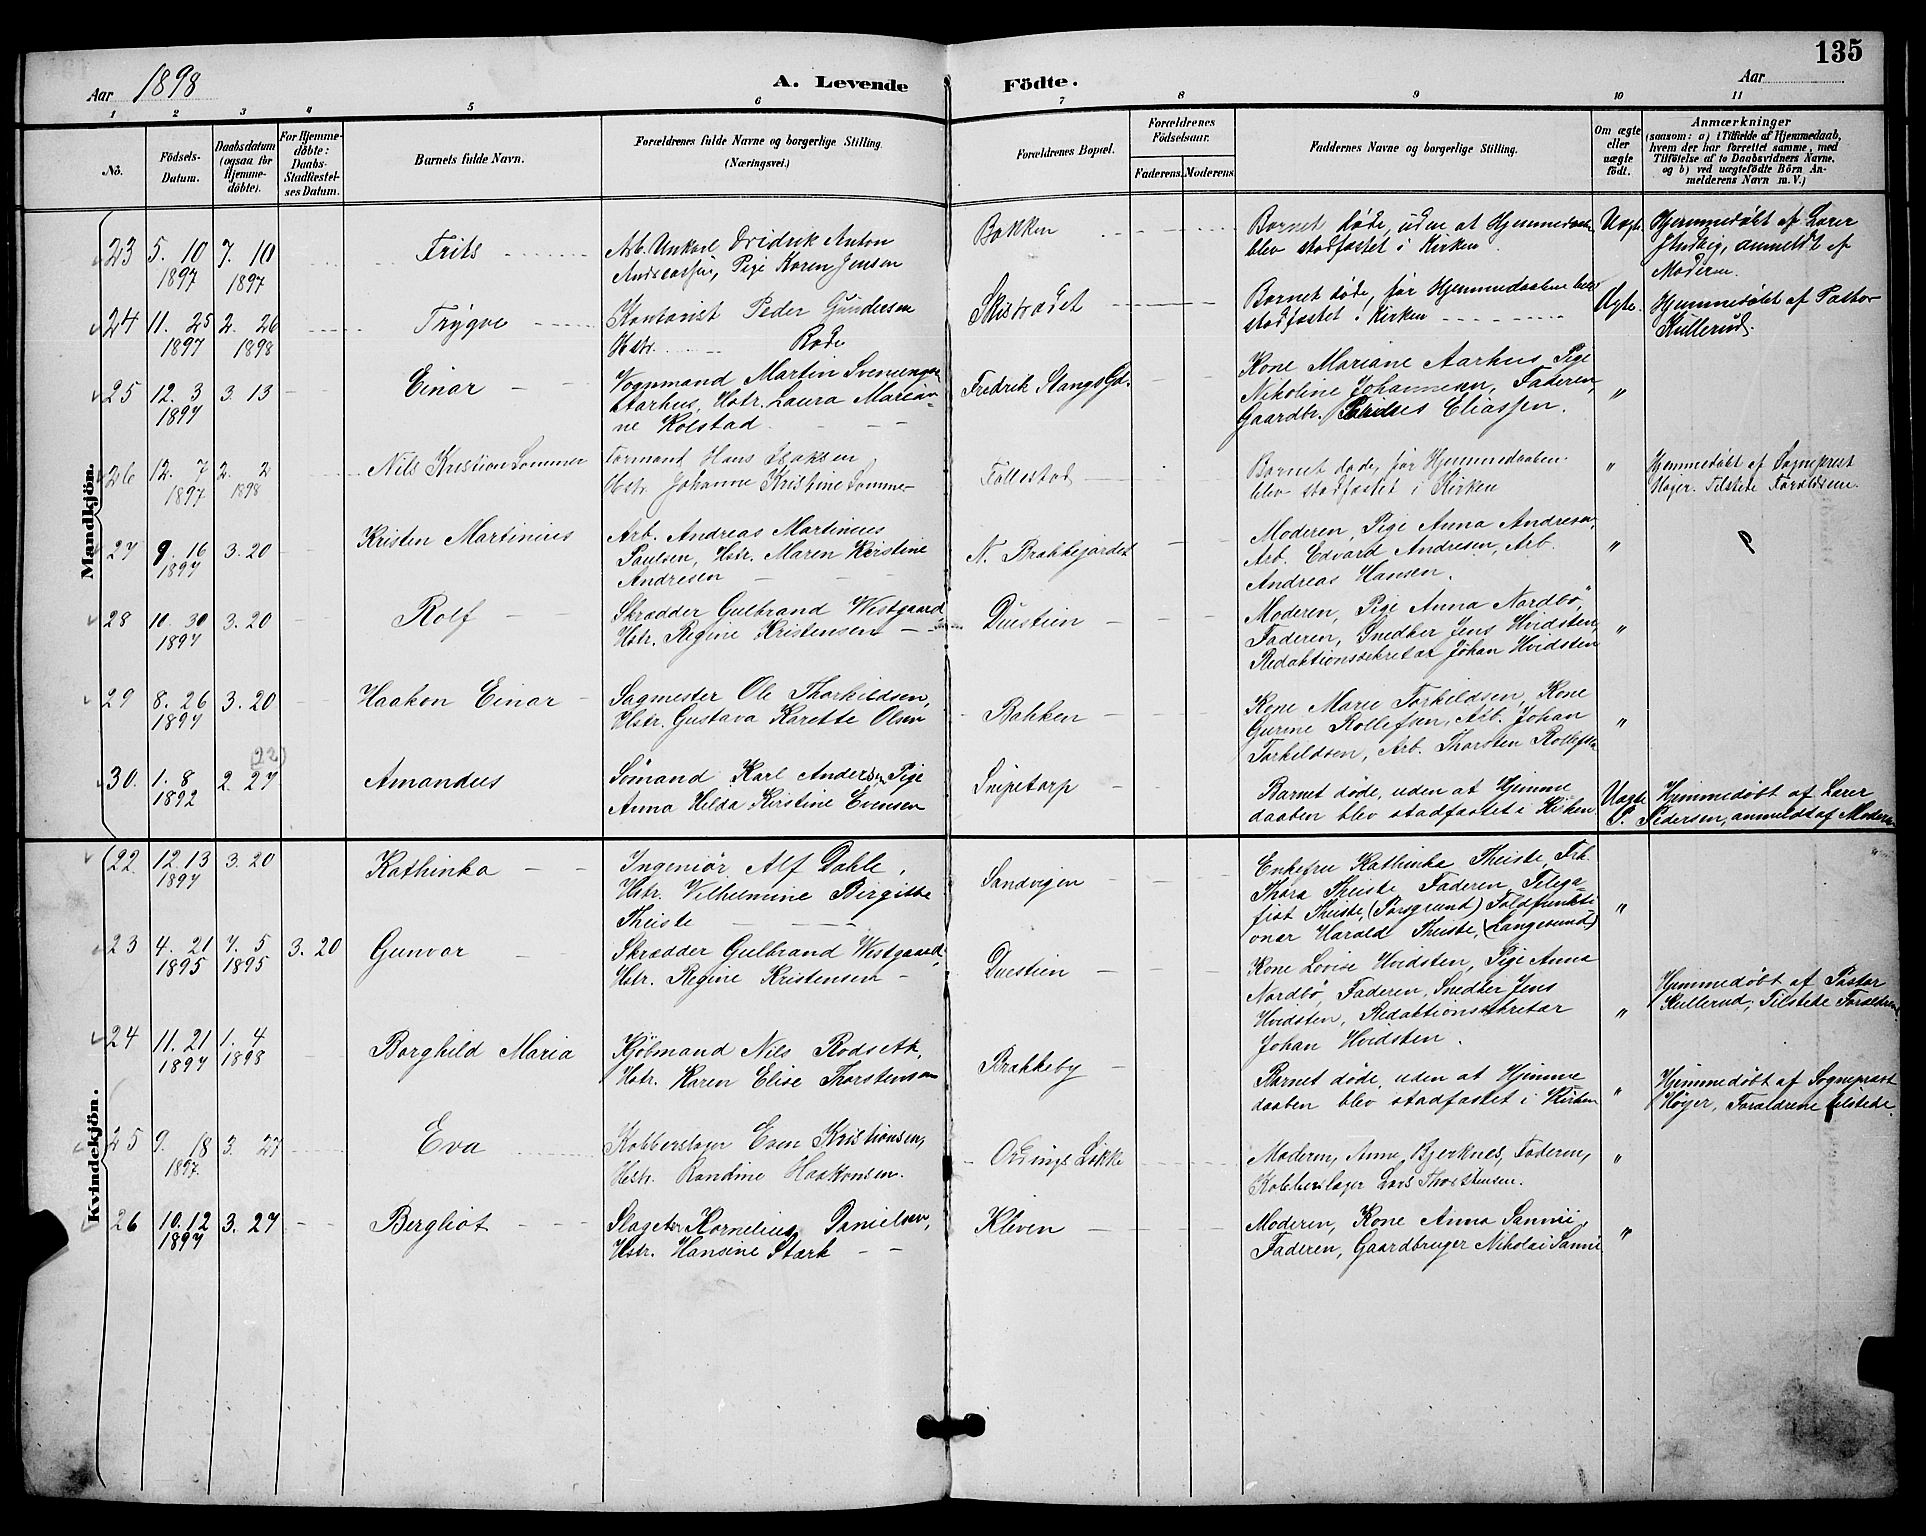 135
Aar 1898
A. Levende Födte.
Aar
1 2 3 4 5 6 7 8 9 10 11
No.
Födsels-Datum.
Daabsdatum (ogsaa for Hjemme-döbte).
For Hjemme-döbte: Daabs-Stadfæstelses Datum.
Barnets fulde Navn.
Forældrenes fulde Navne og borgerlige Stilling. (Næringsvei.)
Forældrenes Bopæl.
Forældrenes Födselsaar.
Faderens. Moderens.
Faddernes Navne og borgerlige Stilling.
Om ægte eller uægte födt.
Anmærkninger
(saasom: a) i Tilfælde af Hjemmedaab, hvem der har forrettet samme, med Tilföielse af to Daabsvidners Navne, og b) ved uægtefödte Börn Anmelderens Navn m. V.)
Mandkjön.
23 5. 10 1897 7. 10 1897 Frits
Arb. Unkarl Dridrik Anton
Pige Karen Jensen
Bakken
Barnet døde, uden at Hjemmedaaben
blev stadfæstet i Kirken
Uægte
Hjemmedøbt af Lærer
anmeldt af
Moderen.
24 11. 25 1897 2. 26 1898 Trygve
Kontorist Peder Gundersen
Hstr. Rode
Barnet døde, før Hjemmedaaben blev
stadfæstet i Kirken
Ægte.
Hjemmedøbt af Pastor
Kullerud.
25 12. 3 1897 3. 13 Einar
Vognmand Martin Svenungsen
Aarhus, Hstr. Laura Marian-
ne Kolstad
Fredrik Stangs Gd.
Kone Mariane Aarhus, Pige
Nikoline Johannesen, Faderen,
Gaardbr. Eliassen.
"
26 12. 7 1897 2. 2 1898 Nils Kristian Sommer
Formand Hans Isaksen
Hstr. Johanne Kristine Sommer
Follestad
Barnet døde, før Hjemmedaaben
blev stadfæstet i Kirken
"
Hjemmedøbt af Sogneprest
Høyer. Tilstede Forældrene.
27 9. 16 1897 3. 20 Kristen Martinius
Arb. Andreas Martinius
Paulsen, Hstr. Maren Kirstine
Andresen
N. Brakkejordet
Moderen, Pige Anna Andresen,
Arb. Edvard Andresen, Arb.
Andreas Hansen.
"
28 10. 30 1897 3. 20 Rolf
Skrædder Gulbrand Westgaard,
Hstr. Regine Kristensen
Duestien
Moderen, Pige Anna Nordbö,
Faderen, Snedker Jens Hvidsten,
Redaktionssekretær Johan Hvidsten
"
29 8. 26 1897 3. 20 Haakon Einar
Sagmester Ole Thorkildsen,
Hstr. Gustava Karette Olsen
Bakken
Kone Marie Torkildsen, Kone
Gurine Rollefsen, Arb. Johan
Torkildsen, Arb. Thorsten Rollefsen
"
(22)
30. 1. 8 1892 2. 27 Amandus
Sømand Karl Andersen, Pige
Anna Hilda Kirstine Evensen
Snipetorp
Barnet døde, uden at Hjemme
daaben blev stadfæstet i Kirken
Uægte
Hjemmedøbt af Lærer
P. Pedersen, anmeldt af Moderen
Kvindekjön.
22 12. 13 1897 3. 20 Kathinka
Ingeniör Alf Dahle,
Hstr. Vilhelmine Birgitte
Theiste
Sandvigen
Enkefru Kathinka Theiste, Frk.
Thora Theiste, Faderen, Telegra-
fist Theiste, (Porsgrund) Toldfunkti-
onær Harald Theiste, (Langesund)
"
23 4. 21 1895 7. 5 1895 3. 20 Gunvor
Skrædder Gulbrand Westgaard,
Hstr. Regine Kristensen
Duestien
Kone Lovise Hvidsten, Pige Anna
Nordbö, Faderen, Snedker Jens
Hvidsten, Redaktionssekretær
Johan Hvidsten.
"
Hjemmedøbt af Pastor
Kullerud, Tilstede Forældrene
24 11. 21 1897 1. 4 1898 Borghild Maria
Kjölmand Nils Rodseth,
Hstr. Karen Elise Thorstensen
Brakkeby
Barnet døde, uden at Hjemme
daaben blev stadfæstet i Kirken
"
Hjemmedøbt af Sogneprest
Høyer, Forældrene tilstede.
25 9. 18 1897. 3. 27 Eva
Kobberslager Even Kristiansen,
Hstr. Randine Haakonsen.
Ordings Løkke
Moderen, Anne Bjerknes, Faderen,
Kobberslager Lars Thorstensen.
"
26 10. 12 1897 3. 27 Bergliot
Slagter Kornelius Danielsen,
Hstr. Hansine Stærk
Kleven
Moderen, Kone Anna Sanni,
Faderen, Gaardbruger Nikolai Sanni
"